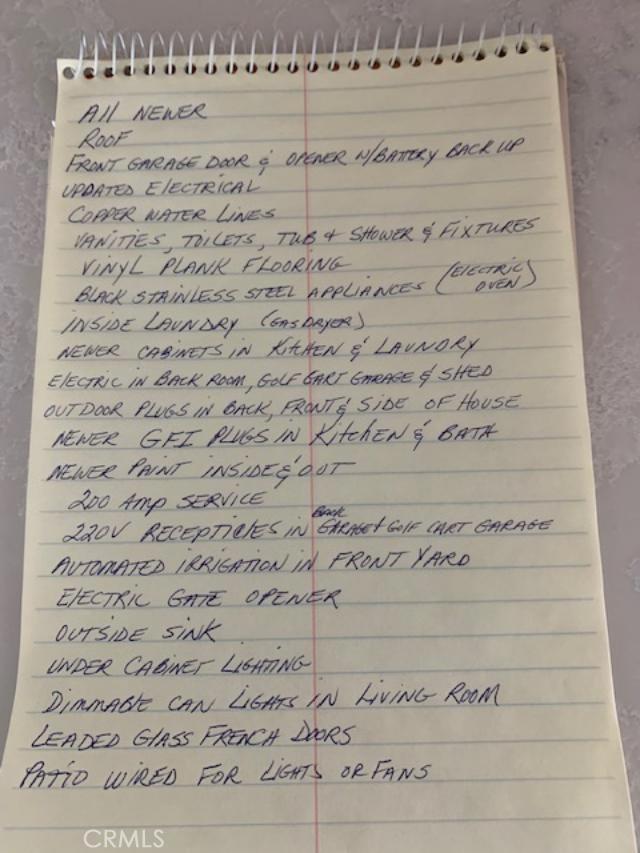 All NEWER
ROOF
FRONT GARAGE DOOR & OPENER W/BATTERY BACK UP
UPDATED ElECTRICAL
COPPER WATER LINES
VANITIES, TOILETS, TUB & SHOWER & FIXTURES
VINYL PLANK FLOORING
BLACK STAINLESS STEEL APPLIANCES (ELECTRIC OVEN)
INSIDE LAUNDRY (GAS DRYER)
NEWER CABINETS IN KITCHEN & LAUNDRY
ELECTRIC IN BACK ROOM, GOLF CART GARAGE & SHED
OUTDOOR PLUGS IN BACK, FRONT & SIDE OF HOUSE
NEWER GFI PLUGS IN KITCHEN & BATH
NEWER PAINT INSIDE & OUT
200 Amp SERVICE
220V RECEPTICIES IN BACK GARAGE & GOLF CART GARAGE
AUTOMATED IRRIGATION IN FRONT YARD
ELECTRIC GATE OPENER
OUTSIDE SINK
UNDER CABINET LIGHTING
DIMMABLE CAN LIGHTS IN LIVING ROOM
LEADED GLASS FRENCH DOORS
PATIO WIRED FOR LIGHTS OR FANS
CRMLS